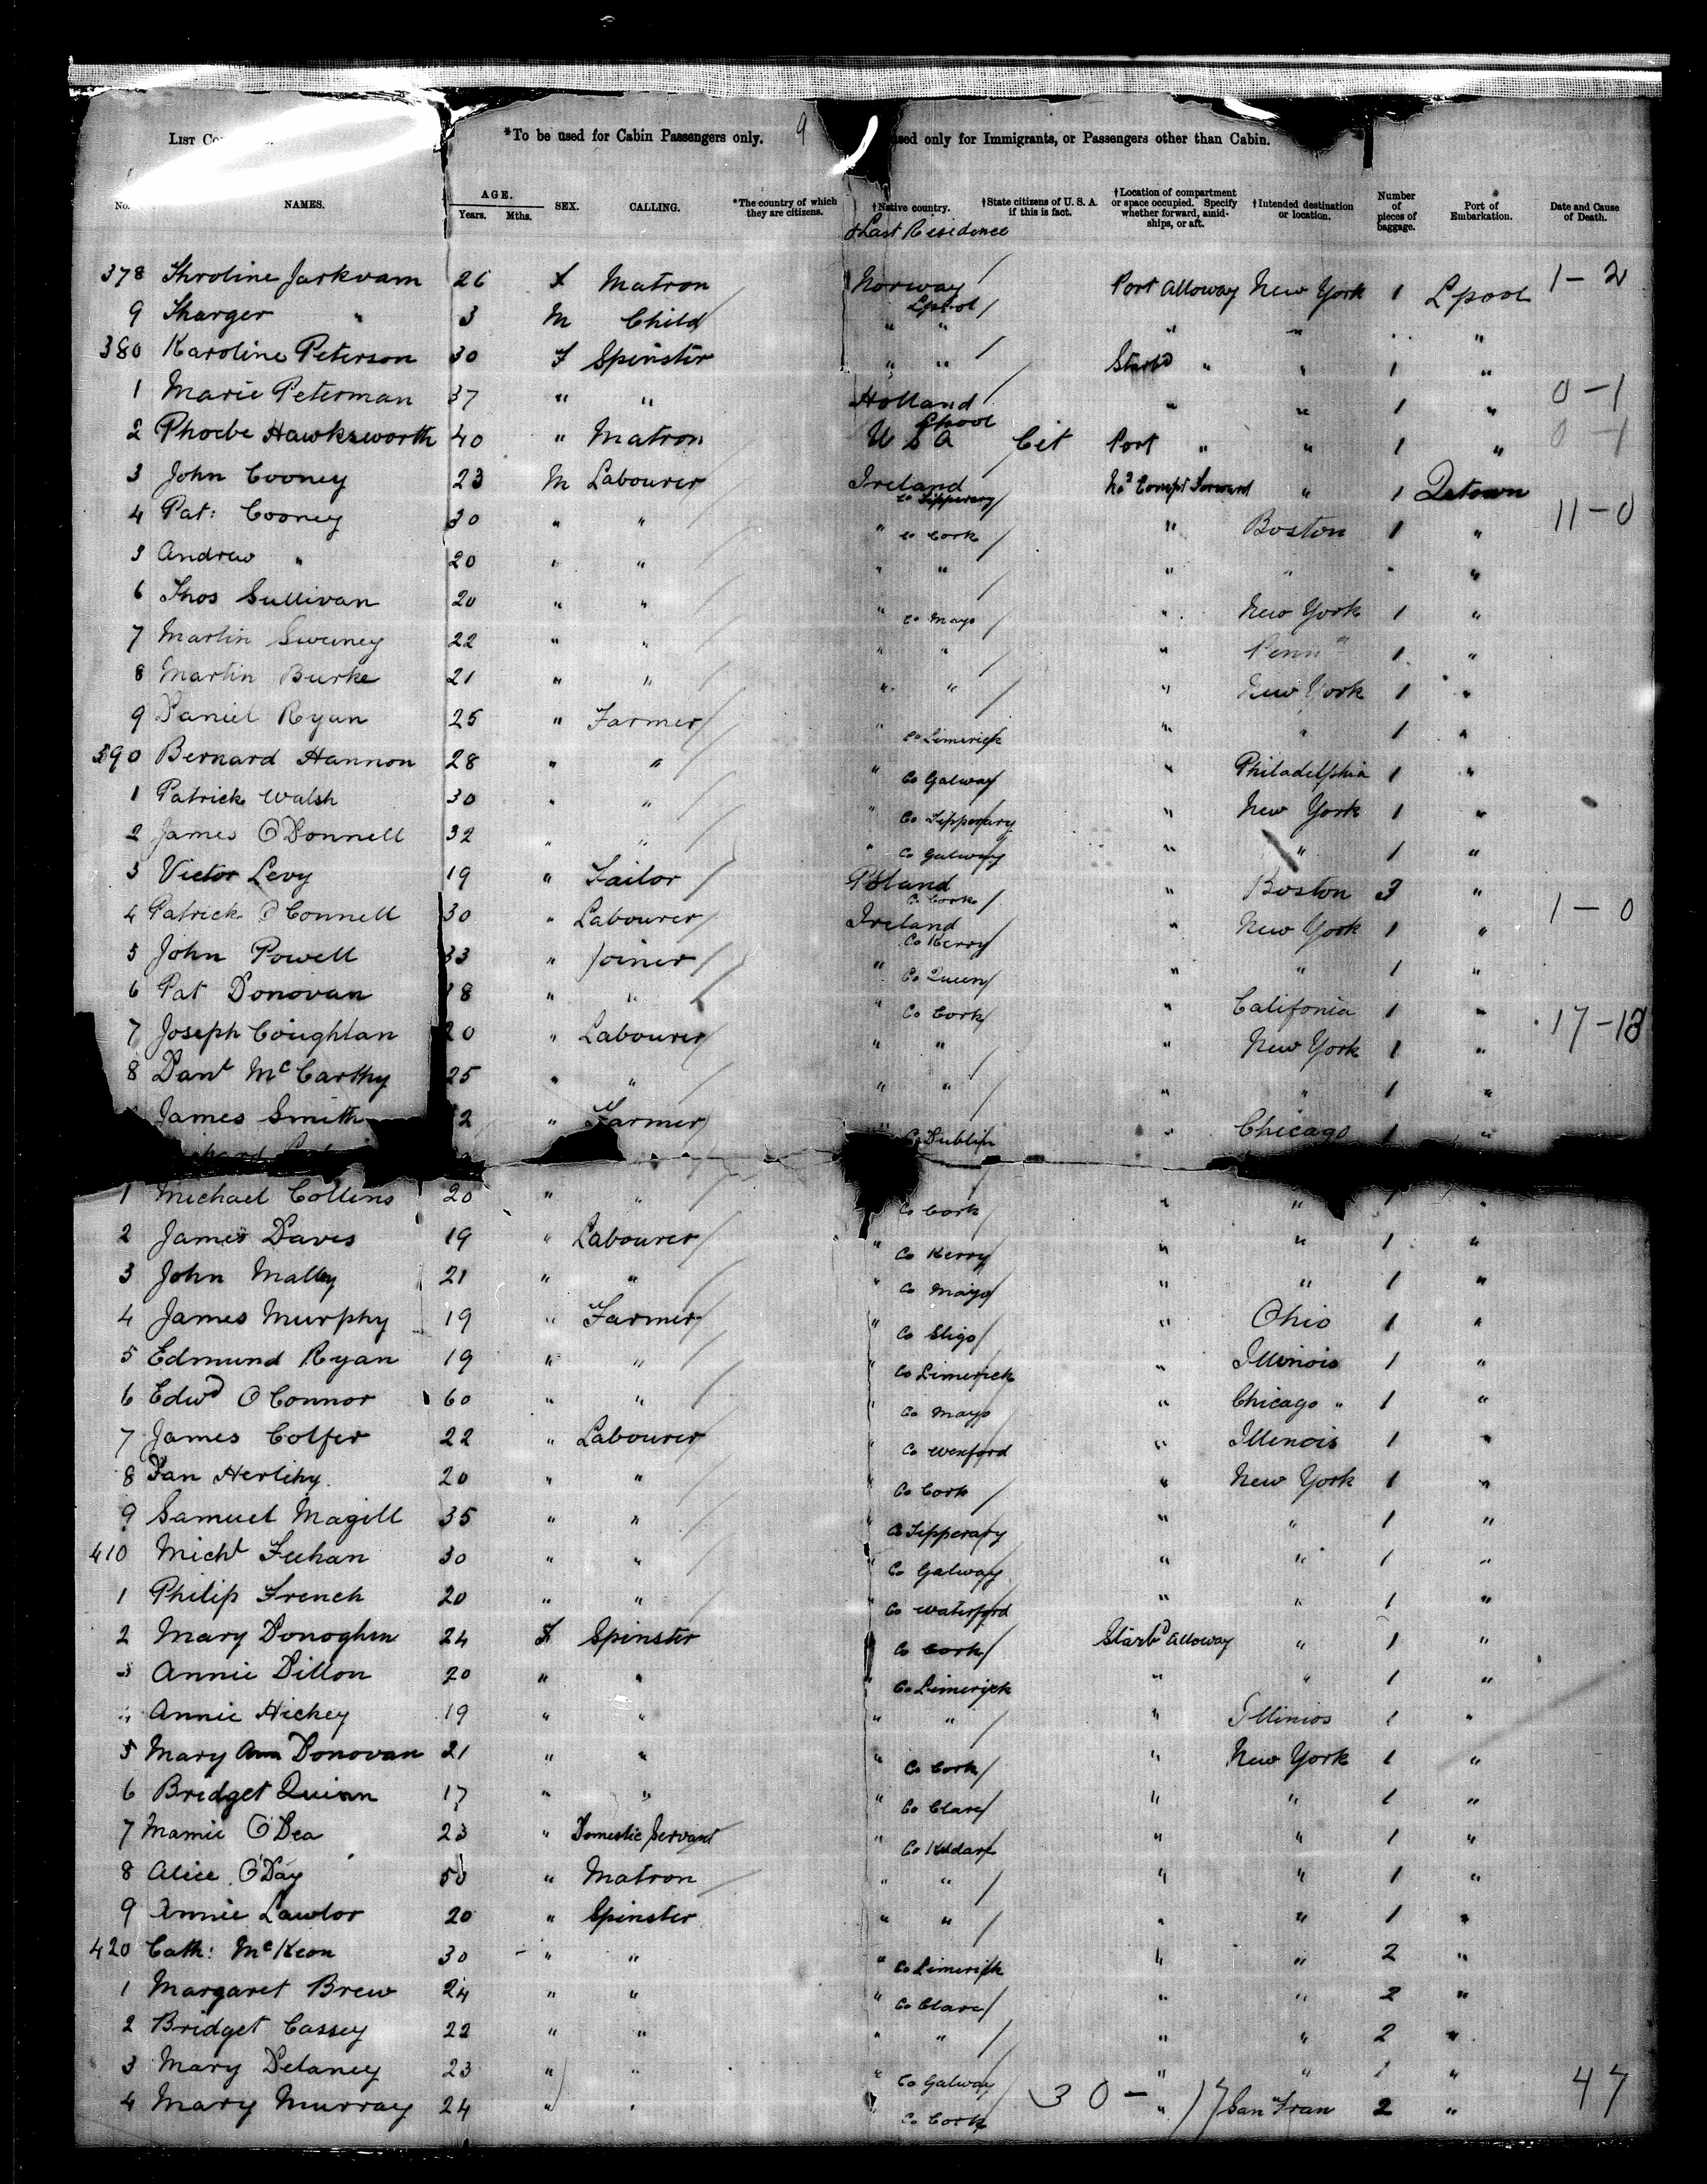 List Co
*To be used for Cabin Passengers only. 9 used only for Immigrants, or Passengers other than Cabin.
No. NAMES. AGE. Years. Mths. SEX. CALLING. *The country of which they are citizens. †Native country. †State citizens of U. S. A. if this is fact. †Location of compartment or space occupied. Specify whether forward, amidships, or aft. †Intended destination or location. Number of pieces of baggage. Port of Embarkation. Date and Cause of Death.
& Last Residence
378 Throline Jarkvam 26 f Matron Norway Lpool Port Alloway New York 1 Lpool 1-2
9 Tharger " 3 M Child " " " " " "
380 Karoline Peterson 30 F Spinster " " Starbd " " 1 "
1 Marie Peterman 37 " " Holland Lpool " " 1 " 0-1
2 Phoebe Hawksworth 40 " Matron U S A Cit Port " " 1 " 0-1
3 John Cooney 23 M Labourer Ireland Co Tipperary No 2 Compt Forward " 1 Qstown
4 Pat: Cooney 30 " " " Co Cork " Boston 1 " 11-0
3 Andrew " 20 " " " " " " " "
6 Thos Sullivan 20 " " " Co Mayo " New York 1 "
7 Martin Sweeney 22 " " " " " Penna 1 "
8 Martin Burke 21 " " " " " New York 1 "
9 Daniel Ryan 25 " Farmer " Co Limerick " " 1 "
390 Bernard Hannon 28 " " " Co Galway " Philadelphia 1 "
1 Patrick Walsh 30 " " " Co Tipperary " New York 1 "
2 James O'Donnell 32 " " " Co Galway " " 1 "
3 Victor Levy 19 " Tailor Poland Co Cork " Boston 3 "
4 Patrick O'Connell 30 " Labourer Ireland Co Kerry " New York 1 " 1-0
5 John Powell 33 " Joiner " Co Queen " " 1 "
6 Pat Donovan 18 " " " Co Cork " Califonia 1 "
7 Joseph Coughlan 20 " Labourer " " " New York 1 " 17-18
8 Danl McCarthy 25 " " " " " " 1 "
James Smith 2 " Farmer " Co Dublin " Chicago 1 "
1 Michael Collins 20 " " Co Cork " " 1 "
2 James Davis 19 " Labourer " Co Kerry " " 1 "
3 John Malley 21 " " " Co Mayo " " 1 "
4 James Murphy 19 " Farmer " Co Sligo " Ohio 1 "
5 Edmund Ryan 19 " " " Co Limerick " Illinois 1 "
6 Edwd O'Connor 60 " " " Co Mayo " Chicago " 1 "
7 James Colfer 22 " Labourer " Co Wexford " Illinois 1 "
8 Dan Herlihy 20 " " " Co Cork " New York 1 "
9 Samuel Magill 35 " " " Co Tipperary " " 1 "
410 Michl Feehan 30 " " " Co Galway " " 1 "
1 Philip French 20 " " " Co Waterford " " 1 "
2 Mary Donoghue 24 F Spinster " Co Cork Starbd Alloway " 1 "
3 Annie Dillon 20 " " " Co Limerick " " 1 "
4 Annie Hickey 19 " " " " " Illinios 1 "
5 Mary Ann Donovan 21 " " " Co Cork " New York 1 "
6 Bridget Quinn 17 " " " Co Clare " " 1 "
7 Mamie O'Dea 23 " Domestic Servant " Co Kildare " " 1 "
8 Alice O'Day 50 " Matron " " " " 1 "
9 Annie Lawlor 20 " Spinster " " " " 1 "
420 Cath: McKeon 30 " " " Co Limerick " " 2 "
1 Margaret Brew 24 " " " Co Clare " " 2 "
2 Bridget Cassey 22 " " " " " " 2 "
3 Mary Delaney 23 " " " Co Galway " " 1 "
4 Mary Murray 24 " " " Co Cork 30 - 17 " San Fran 2 " 47